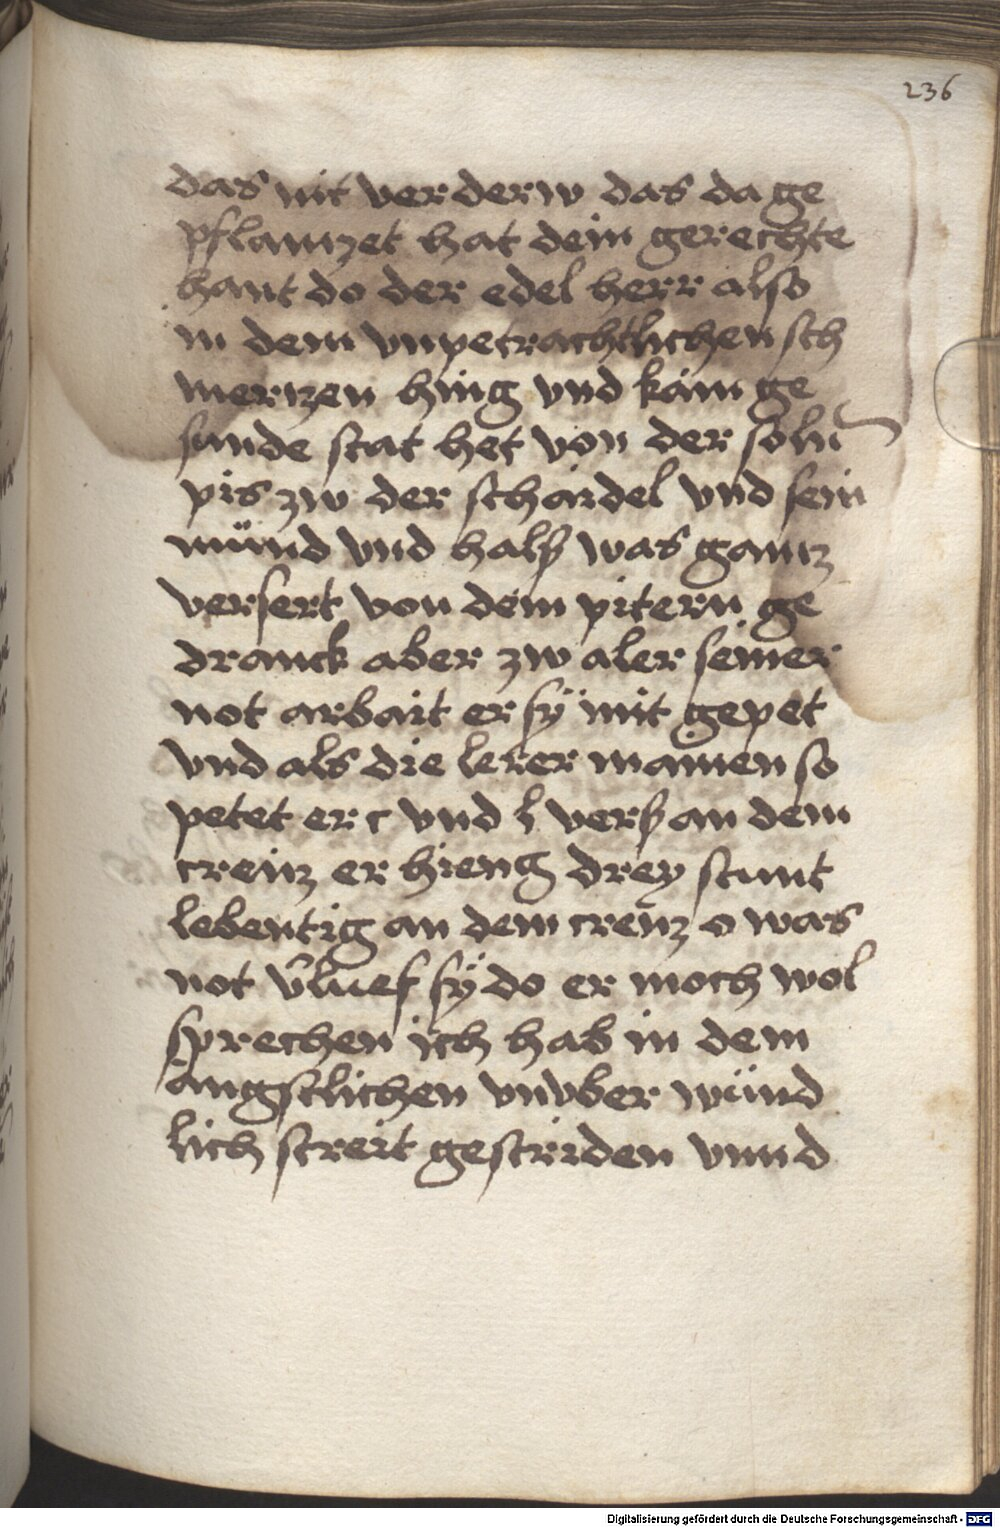 236
das nit verderw das da ge
pflantzet hat dein gerechte
hant do der edel herr also
in dem vnpetrachtlichen sch
mertzen hing vnd kain ge
sunde stat het von der soln
pis zw der schaidel vnd sein
münd vnd halß was gantz
versert von dem pitern ge
dranck aber zw aler seiner
not arbait er sÿ mit gepet
vnd als die lerer mainen so
petet er c vnd l verß an dem
creitz er hieng drey stunt
lebentig an dem creitz o was
not sÿ do er moch wol
sprechen ich hab in dem
angstlichen vnvber wünd
lich streit gestriden vnnd
Digitalisierung gefördert durch die Deutsche Forschungsgemeinschaft - DFG